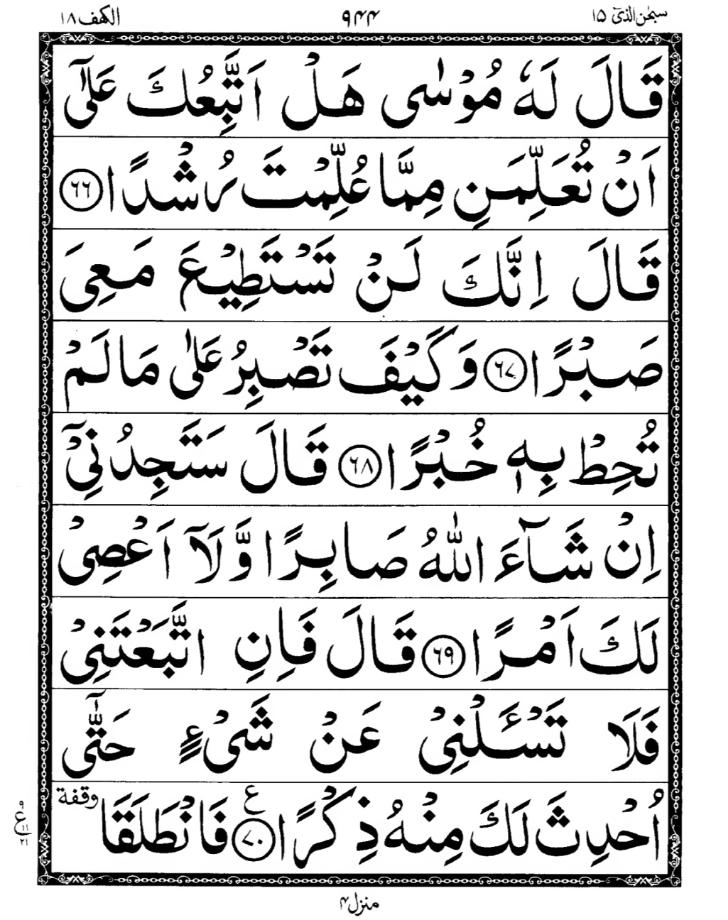 سبحٰن الذیٓ ۱۵ ۹۴۴ الکہف ۱۸
قَالَ لَهٗ مُوْسٰى هَلْ اَتَّبِعُكَ عَلٰۤى
اَنْ تُعَلِّمَنِ مِمَّا عُلِّمْتَ رُشْدًا ﴿۶۶﴾
قَالَ اِنَّكَ لَنْ تَسْتَطِیْعَ مَعِیَ
صَبْرًا ﴿۶۷﴾ وَ كَیْفَ تَصْبِرُ عَلٰى مَا لَمْ
تُحِطْ بِهٖ خُبْرًا ﴿۶۸﴾ قَالَ سَتَجِدُنِیْۤ
اِنْ شَآءَ اللّٰهُ صَابِرًا وَّ لَاۤ اَعْصِیْ
لَكَ اَمْرًا ﴿۶۹﴾ قَالَ فَاِنِ اتَّبَعْتَنِیْ
فَلَا تَسْـَٔلْنِیْ عَنْ شَیْءٍ حَتّٰۤى
اُحْدِثَ لَكَ مِنْهُ ذِكْرًا ﴿۷۰﴾ ع فَانْطَلَقَا وقفة
۹
ع ۱۱
۲۱
منزل ۴